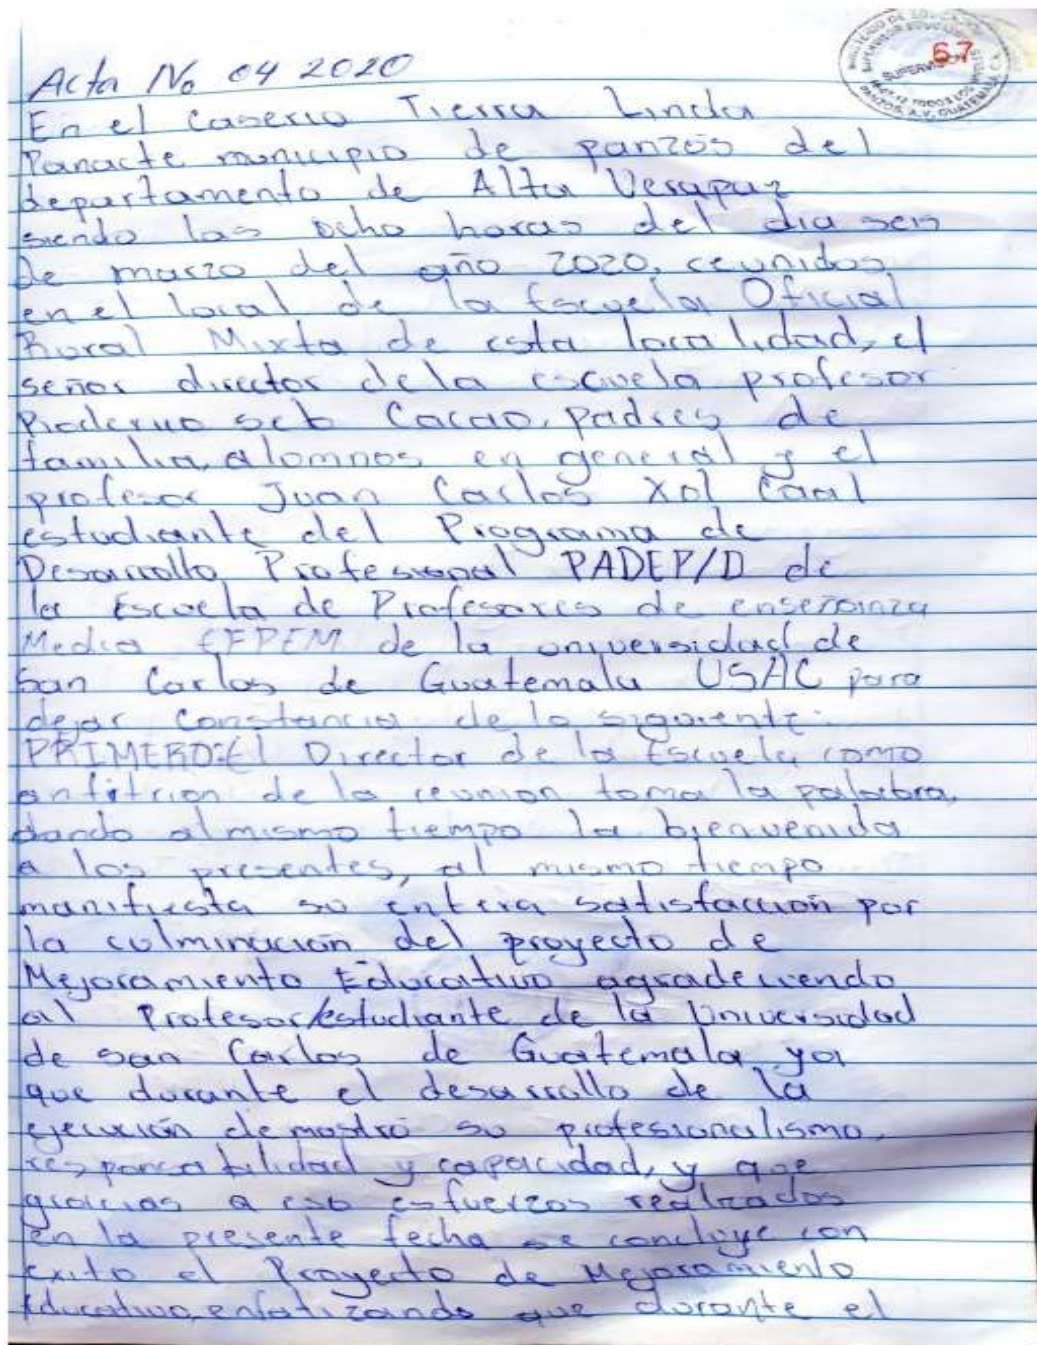 67
Acta No 04 2020
En el Caserio Tierra Linda
Panacte municipio de panzós del
departamento de Alta Verapaz
siendo las ocho horas del dia seis
de marzo del año 2020, reunidos
en el local de la Escuela Oficial
Rural Mixta de esta localidad, el
señor director de la escuela profesor
Seb Cacao, padres de
familia, alomnos en general y el
profesor Juan Carlos Xol Caal
estudiante del Programa de
Desarrollo Profesional PADEP/D de
la Escuela de Profesores de enseñanza
Media EFPEM de la universidad de
San Carlos de Guatemala USAC para
dejar constancia de lo siguiente:
PRIMERO: El Director de la Escuela como
anfitrion de la reunion toma la palabra,
dando al mismo tiempo la bienvenida
a los presentes, al mismo tiempo
manifiesta su entera satisfacción por
la culminación del proyecto de
Mejoramiento Educativo agradeciendo
al Profesor/estudiante de la Universidad
de san Carlos de Guatemala ya
que durante el desarrollo de la
ejecución demostró su profesionalismo,
responsabilidad y capacidad, y que
gracias a eso esfuerzos realizados
en la presente fecha se concluye con
exito el Proyecto de Mejoramiento
Educativo, enfatizando que durante el